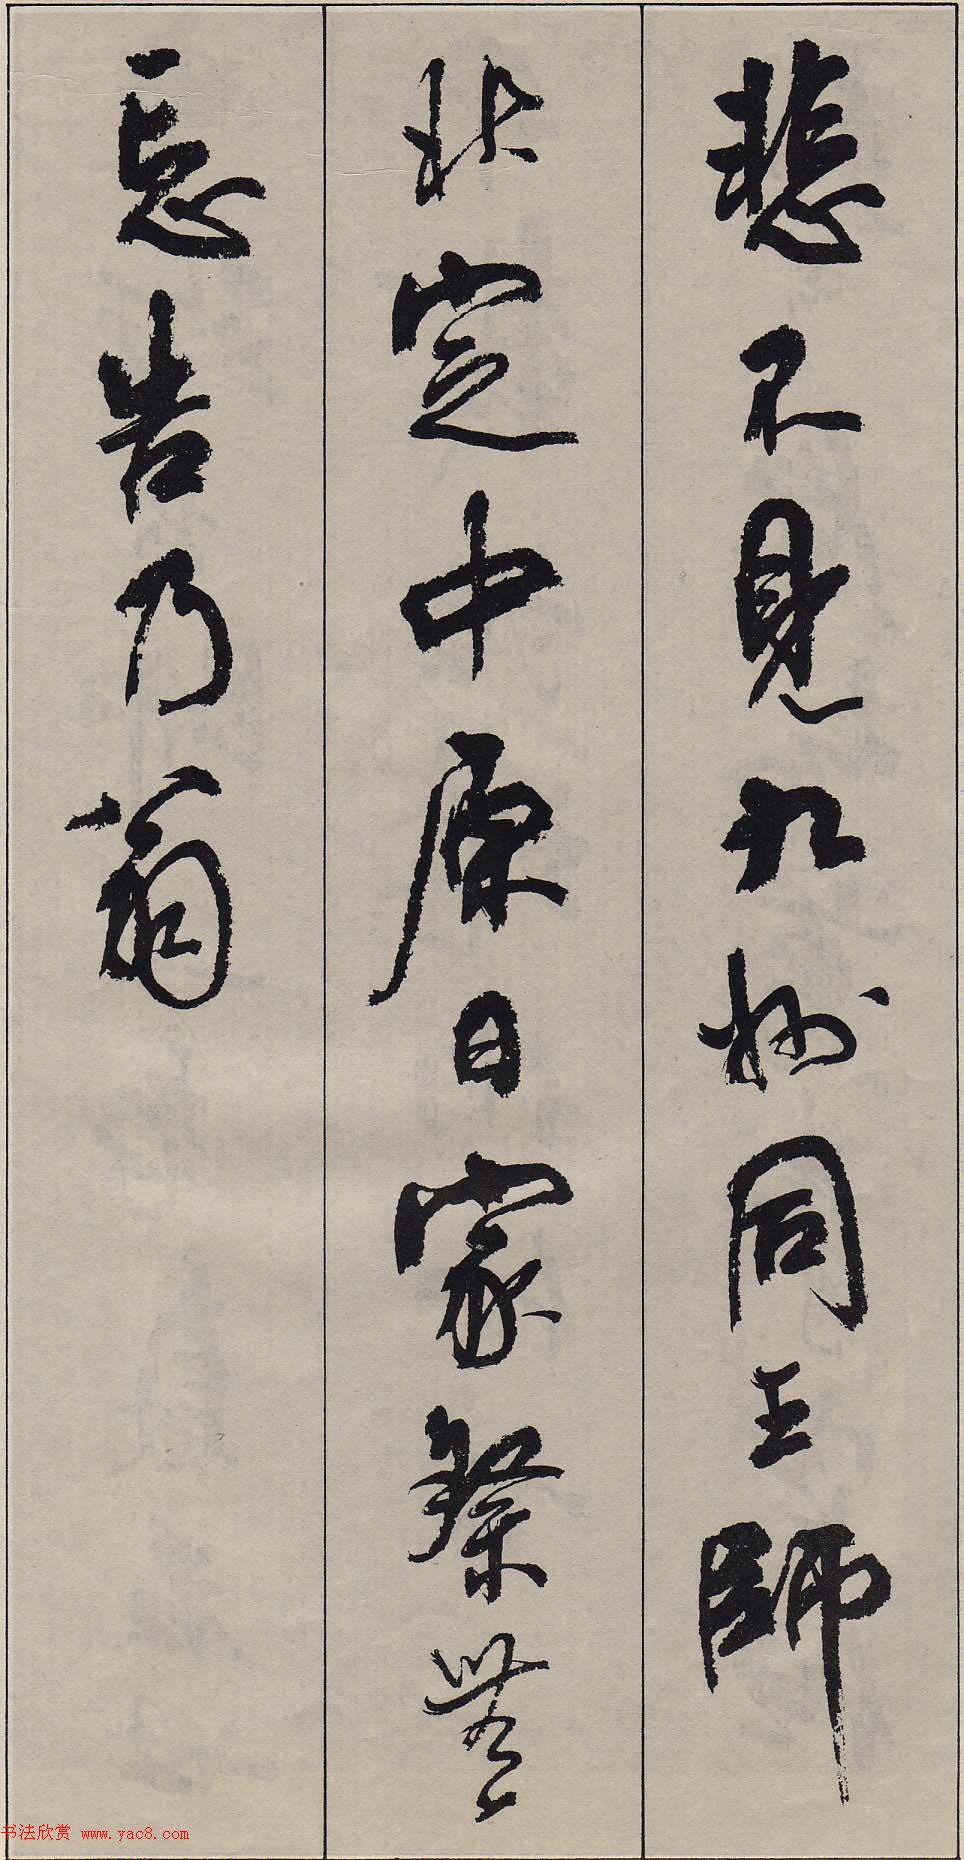 悲不見九州同王師
北定中原日家祭無
忘告乃翁
书法欣赏 www.yac8.com